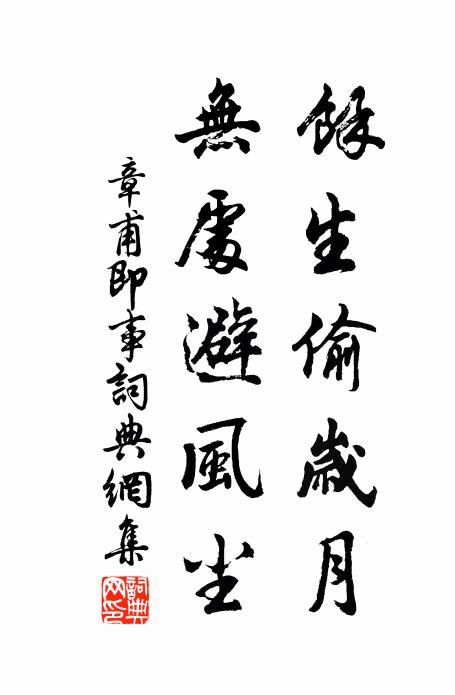 餘生偷歲月
無處避風尘
章甫即事詞典網集
詞典网印